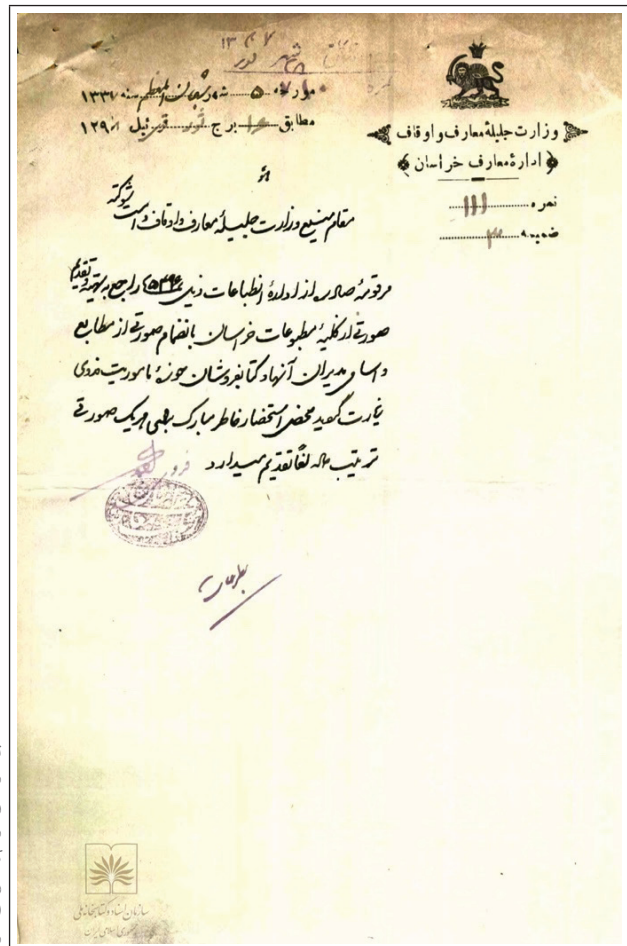 وزارت جلیلهٔ معارف و اوقاف
ادارهٔ معارف خراسان
نمره ۱۱۱
ضمیمه ۳
مورخه ۵ شهر شعبان المعظم سنه ۱۳۳۷
مطابق برج ثور ئیل ۱۲۹۸
نمره ۷۱۰
مقام منیع وزارت جلیلهٔ معارف و اوقاف دامت شوکته
مرقومهٔ صادره از ادارهٔ انطباعات ذیل راجع به تهیه و تقدیم
صورتی از کلیهٔ مطبوعات خراسان بانضمام صورتی از مطابع
و اسامی مدیران آنها و کتابفروشان حوزهٔ ماموریت فدوی
زیارت گردید محض استحضار خاطر مبارک صورتی
ترتیب داده لفاً تقدیم میدارد
سازمان اسناد و کتابخانه ملی
جمهوری اسلامی ایران